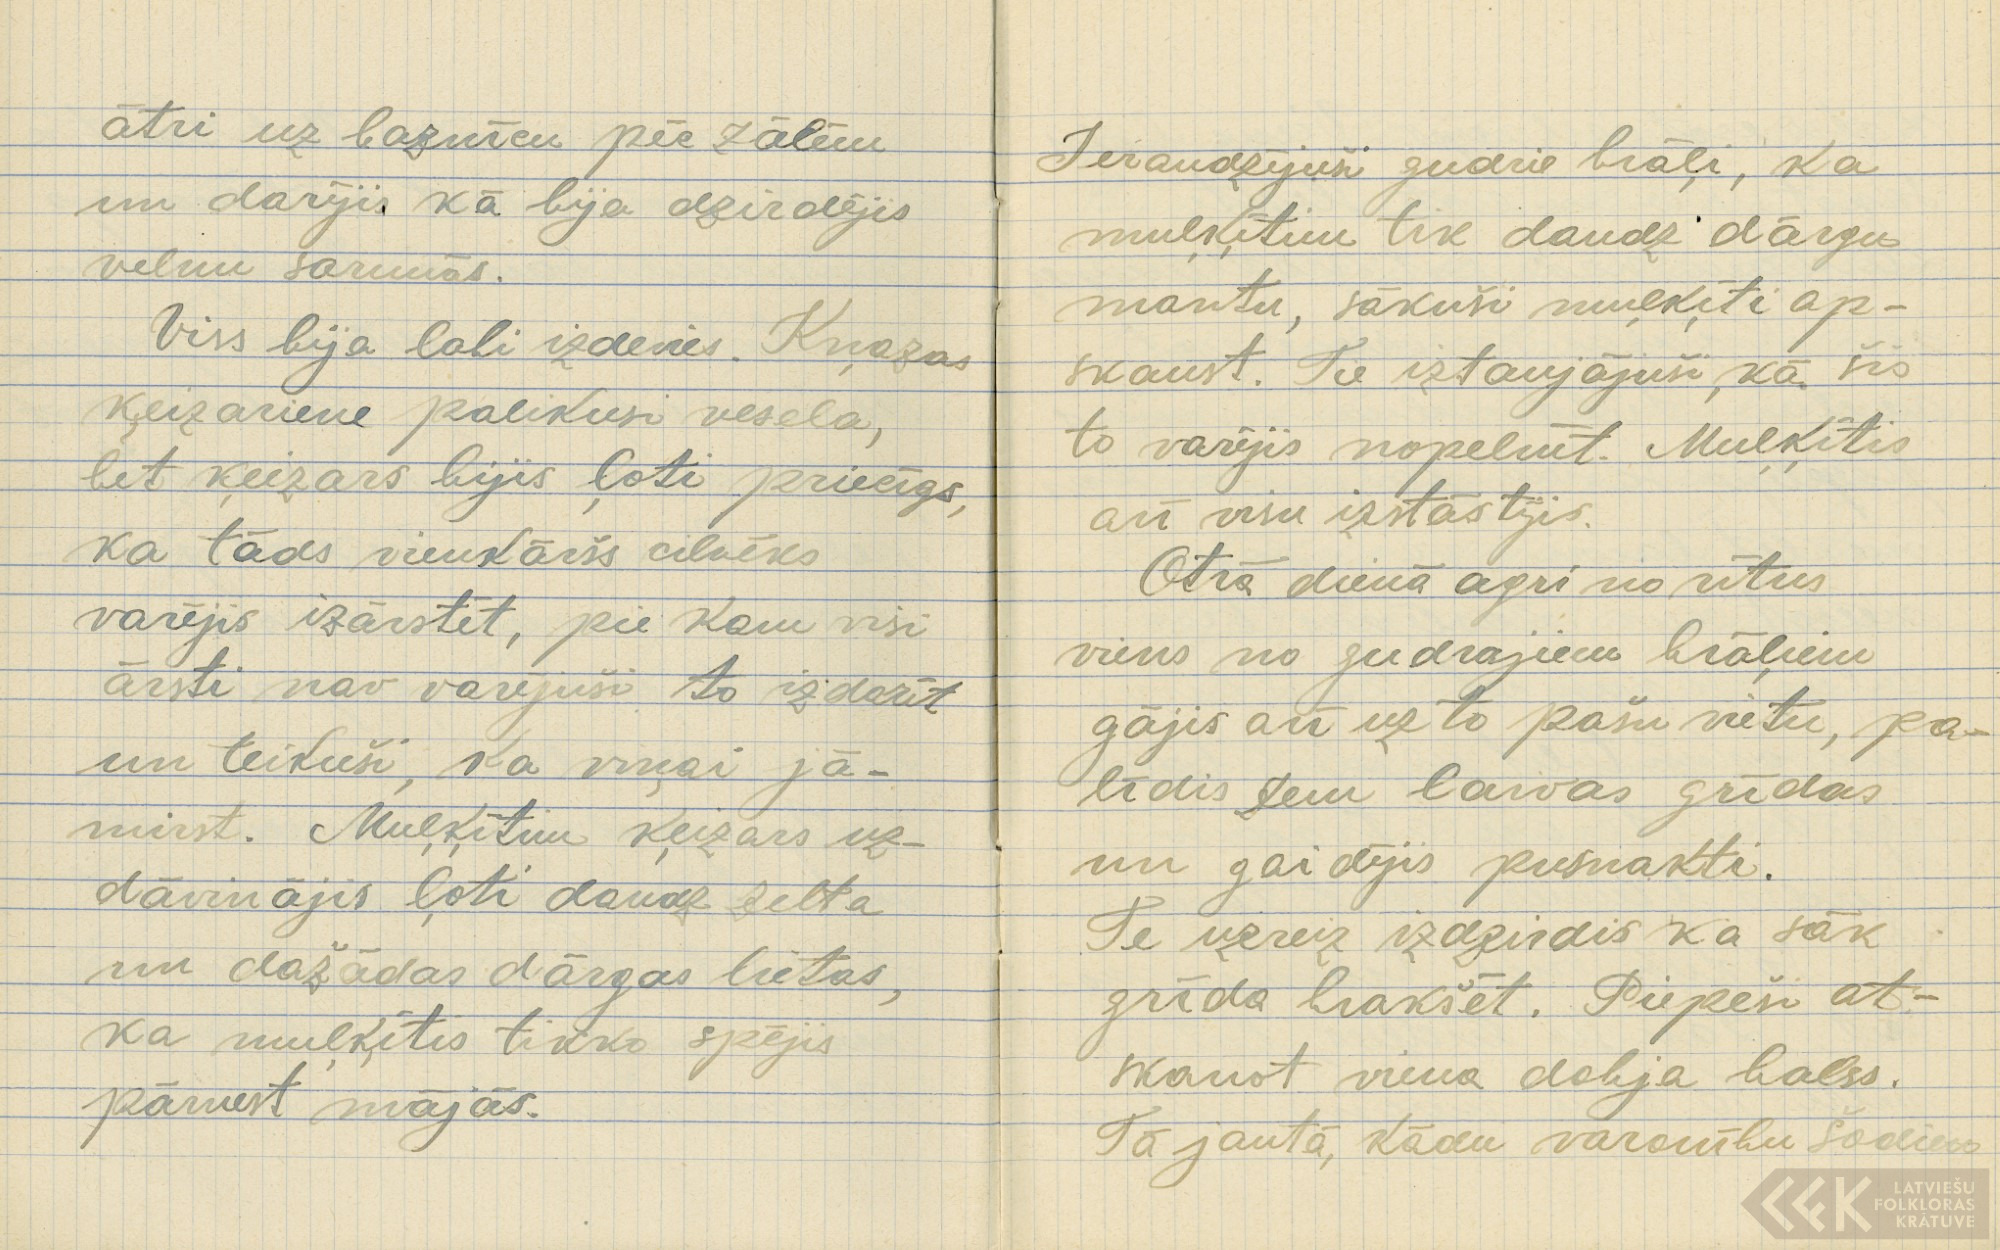 ātri uz baznīcu pēc zālēm
un darījis kā bija dzirdējis
velnu sarunās.
Viss bija labi izdevies. Kņazas
ķeizariene palikusi vesela,
bet ķeizars bijis ļoti priecīgs,
ka tāds vienkāršs cilvēks
varējis izārstēt, pie kam visi
ārsti nav varējuši to izdarīt
un teikuši, ka viņai jā-
mirst. Muļķītim ķeizars uz-
dāvinājis ļoti daudz zelta
un dažādas dārgas lietas,
ka muļķītis tikko spējis
pārnest mājās.
Ieraudzījuši gudrie brāļi, ka
muļķītim tik daudz dārgu
mantu, sākuši muļķīti ap-
skaust. Tie iztaujājuši, kā šis
to varējis nopelnīt. Muļķītis
arī visu izstāstījis.
Otrā dienā agri no rītus
viens no gudrajiem brāļiem
gājis arī uz to pašu vietu, pa-
līdis zem laivas grīdas
un gaidījis pusnakti.
Te uzreiz izdzirdis ka sāk
grīda brakšēt. Piepeši at-
skanot viena dobja balss.
Tā jautā, kādu varonību šodien
LATVIEŠU
FOLKLORAS
KRĀTUVE